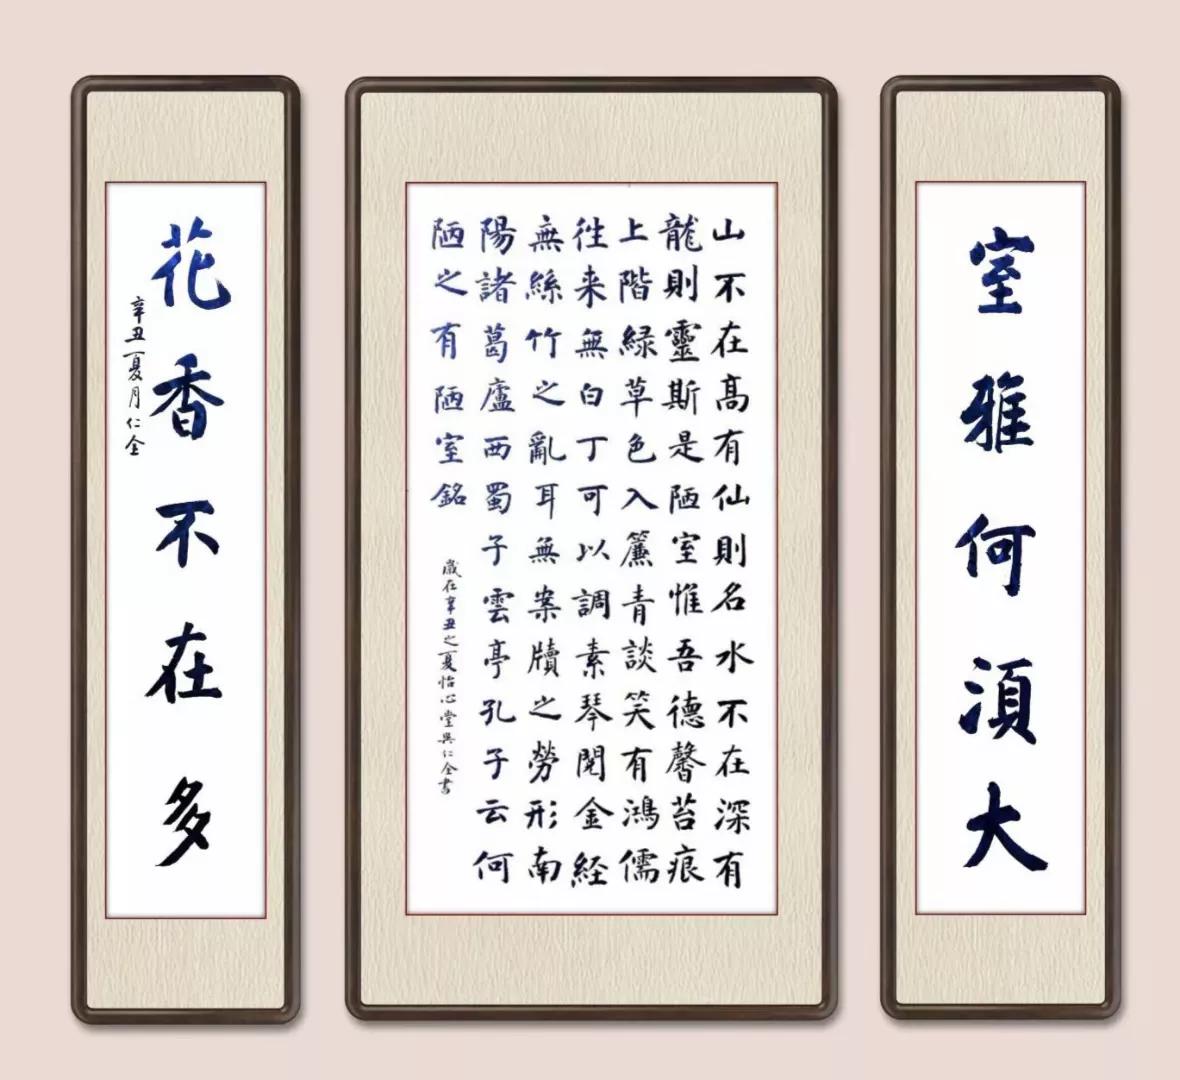 室雅何湏大
山不在髙有仙則名水不在深有
龍則靈斯是陋室惟吾德馨苔痕
上階緑草色入簾青談笑有鴻儒
往来無白丁可以調素琴閲金経
無絲竹之亂耳無案牘之勞形南
陽諸葛廬西蜀子雲亭孔子云何
陋之有陋室銘
歲在辛丑之夏怡心堂吳仁全書
花香不在多
辛丑夏月仁全